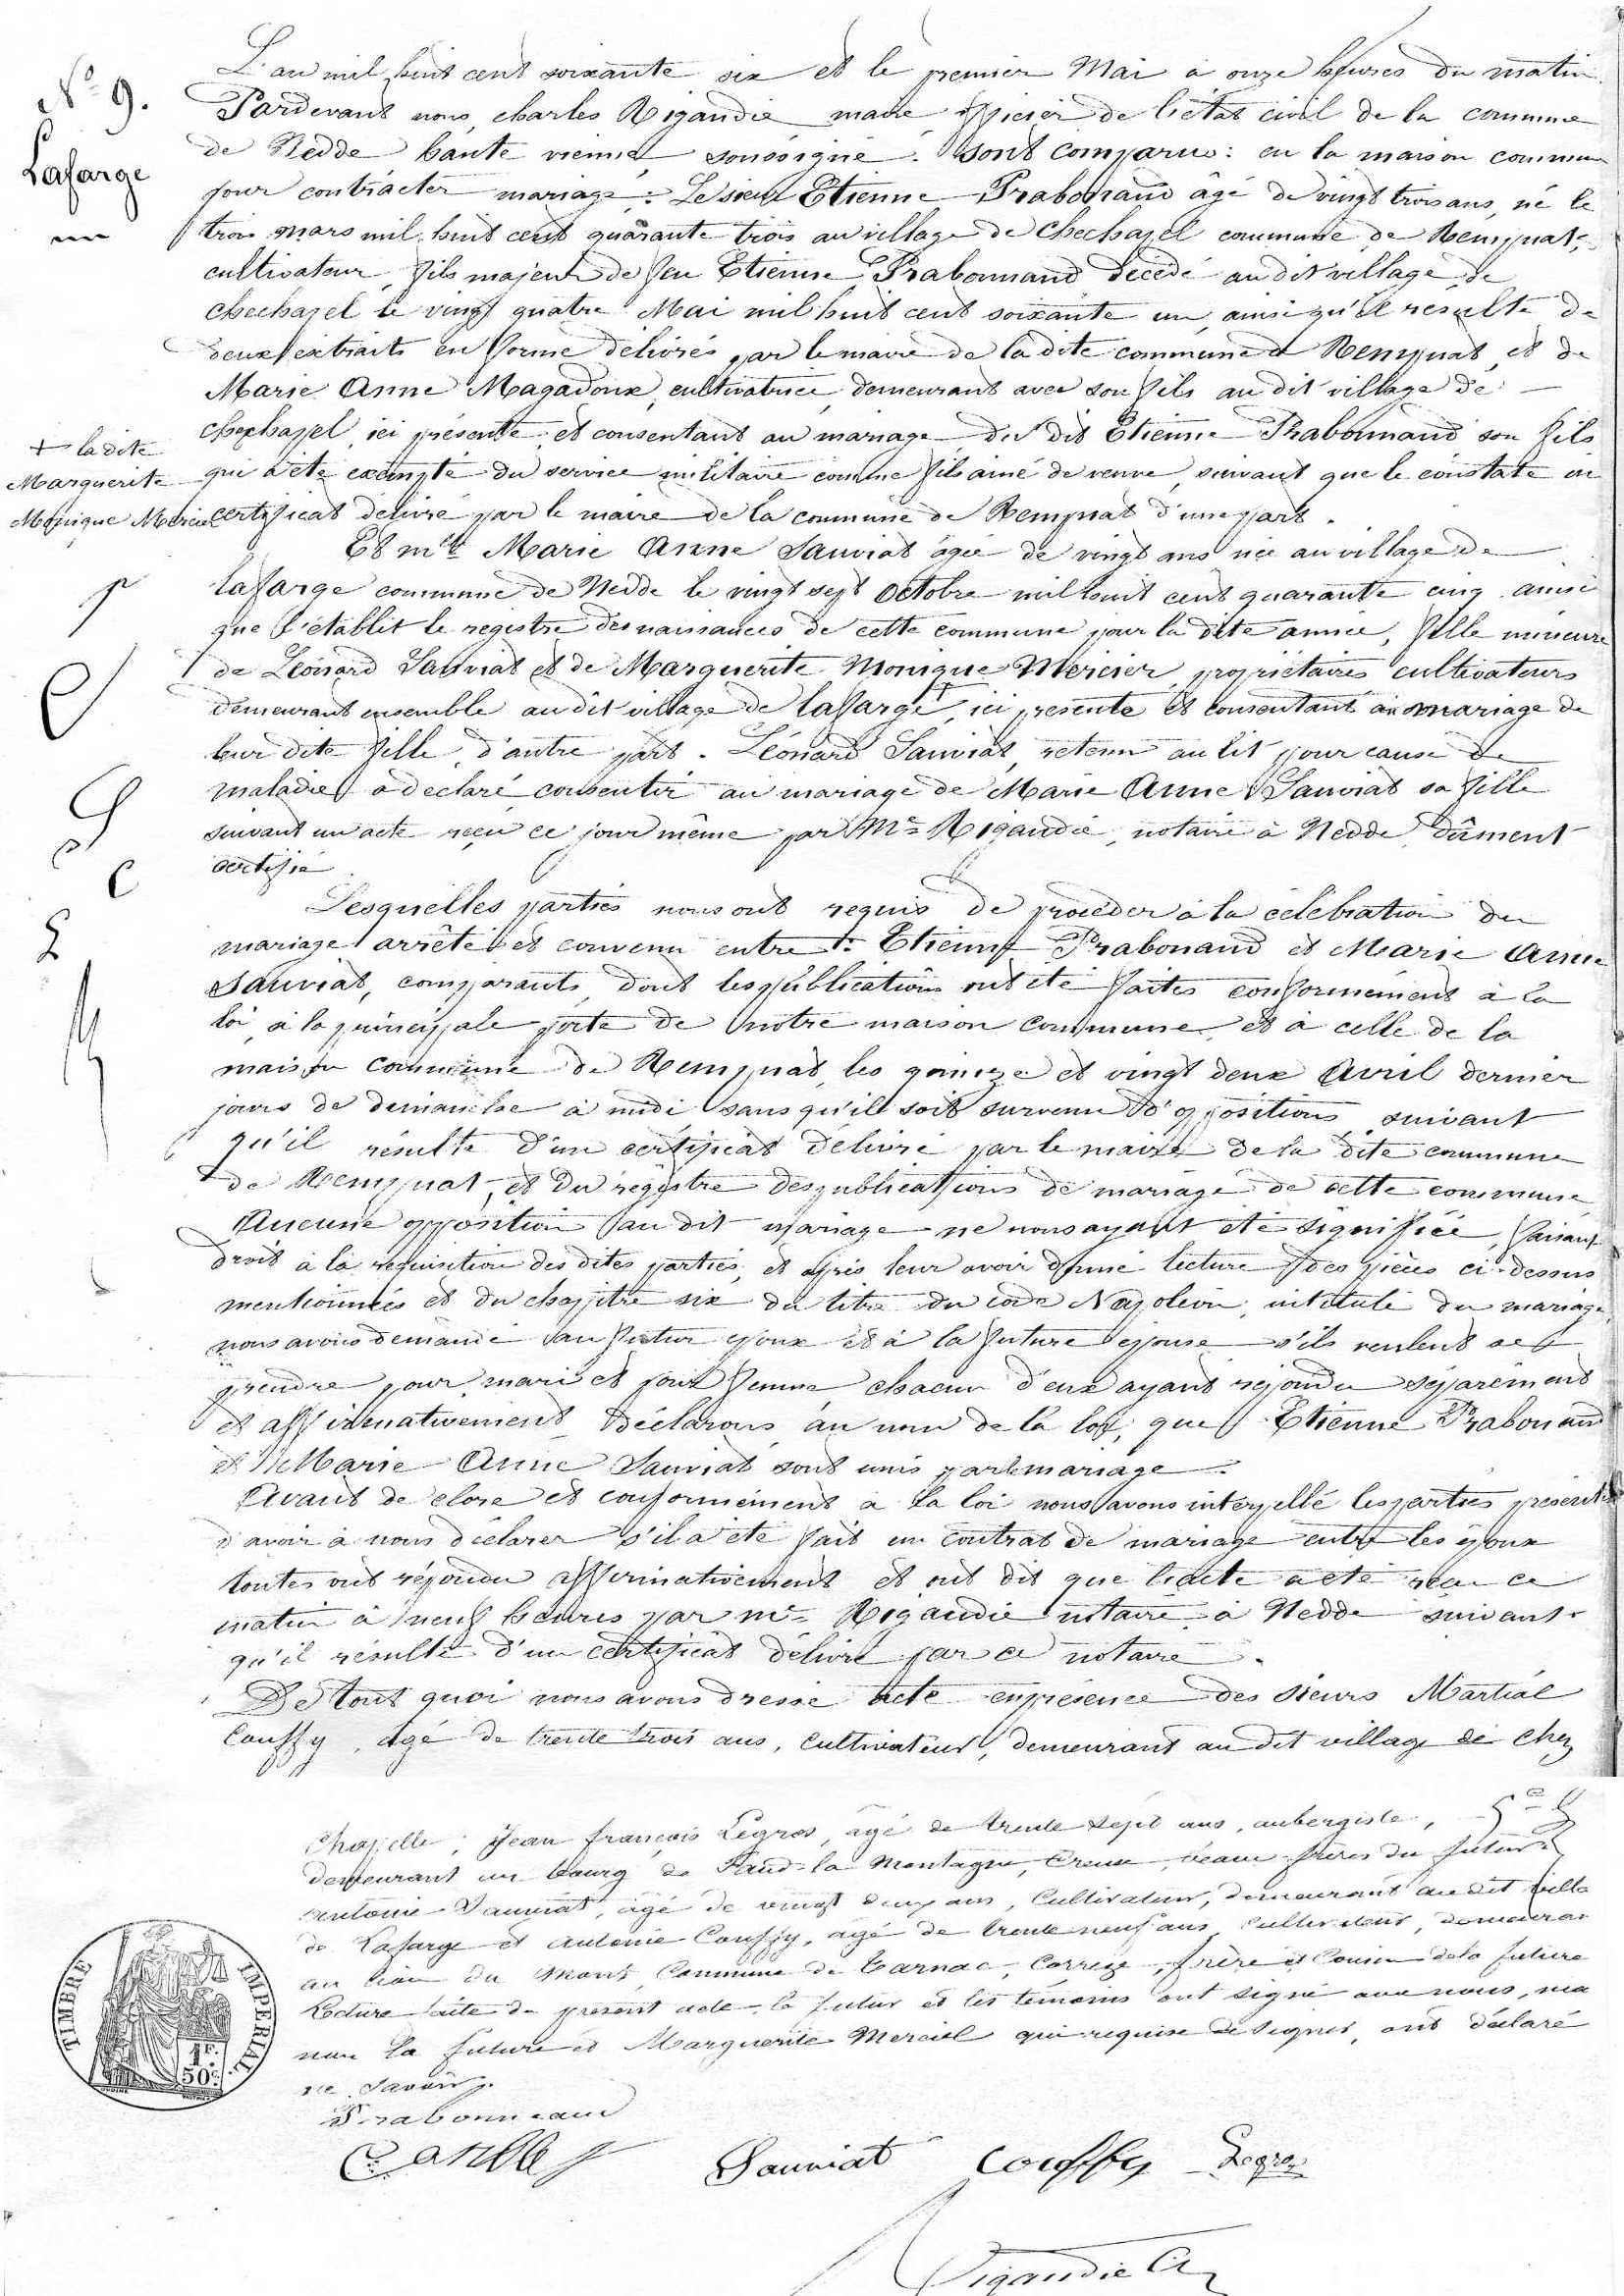 N° 9.
Lafarge
L'an mil huit cent soixante six et le premier Mai à onze heures du matin
Pardevant nous, charles Rigaudie maire officier de l'état civil de la commune
de Nedde haute vienne, soussigné. Sont comparus: en la maison commune
pour contracter mariage: Le sieur Etienne Prabonaud âgé de vingt trois ans, né le
trois mars mil huit cent quarante trois au village de Chechapel commune de Rempnat,
cultivateur, fils majeur de feu Etienne Prabonnaud décédé au dit village de
chechapel le vingt quatre Mai mil huit cent soixante un, ainsi qu'il resulte de
deux extraits en forme délivrés par le maire de la dite commune de Rempnat, et de
Marie Anne Magadoux, cultivatrice, demeurant avec son fils au dit village de
chechapel, ici présente et consentant au mariage du dit Etienne Prabonnaud son fils
qui a été exempté du service militaire comme fils ainé de veuve, suivant que le constate un
certificat délivré par le maire de la commune de Rempnat d'une part.
+ la dite
Marguerite
Monique Mercier
Et mlle Marie Anne Sauviat âgée de vingt ans née au village de
lafarge commune de Nedde le vingt sept Octobre mil huit cent quarante cinq ainsi
que l'établit le registre des naissances de cette commune pour la dite année, fille mineure
de Léonard Sauviat et de Marguerite Monique Mercier, propriétaires cultivateurs
demeurant ensemble au dit village de lafarge +, ici presente et consentant au mariage de
leur dite fille, d'autre part. Léonard Sauviat, retenu au lit pour cause de
maladie a declaré consentir au mariage de Marie Anne Sauviat sa fille
suivant un acte reçu ce jour même par Me Rigaudie, notaire à Nedde, dûment
certifié
Lesquelles parties nous ont requis de procéder à la célébration du
mariage arrêté et convenu entre: Etienne Prabonaud et Marie Anne
Sauviat, comparants, dont les publications ont été faites conformément à la
loi, à la principale porte de notre maison commune, et à celle de la
maison commune de Rempnat, les quinze et vingt deux Avril dernier
jours de dimanche à midi, sans qu'il soit survenu d'oppositions, suivant
qu'il résulte d'un certificat délivré par le maire de la dite commune
de Rempnat, et du régistre des publications de mariage de cette commune
Aucune opposition au dit mariage ne nous ayant été signifiée, faisant
droit à la requisition des dites parties, et après leur avoir donné lecture des pièces ci-dessus
mentionnées et du chapitre six du titre du code Napoléon, intitulé du mariage,
nous avons demandé au futur epoux et à la future epouse s'ils veulent se
prendre pour mari et pour femme, chacun d'eux ayant répondu séparément
et affirmativement, Déclarons, au nom de la loi, que Etienne Prabonaud
et Marie Anne Sauviat sont unis par le mariage.
Avant de clore et conformément à la loi nous avons interpellé les parties présentes
d'avoir à nous déclarer s'il a été fait un contrat de mariage entre les époux
toutes ont répondu affirmativement et ont dit que l'acte a été reçu ce
matin à neuf heures par me Rigaudie notaire à Nedde suivant
qu'il résulte d'un certificat délivré par ce notaire.
De tout quoi nous avons dressé acte en présence des sieurs Martial
Couffy, agé de trente trois ans, cultivateur, demeurant au dit village de Chez
Chapelle, Jean françois Legros, agé de trente sept ans, aubergiste,
demeurant au bourg de Faud-la Montagne, Creuse, beaux frères du futur
antoine Sauviat, agé de vingt deux ans, Cultivateur, demeurant au dit villa
de Lafarge et Antoine Couffy, agé de trente neuf ans, Cultivateur, demeurant
au lieu du Mont, Commune de Tarnac, Corrèze, frère et Cousin de la future
Lecture faite du présent acte, le futur et les témoins ont signé avec nous, ma
non la future et Marguerite Merciel qui requise de signer, ont déclaré
ne savoir.
Prabonneaud
Sauviat Couffy Legros
Rigaudie
TIMBRE IMPERIAL
1F. 50C.